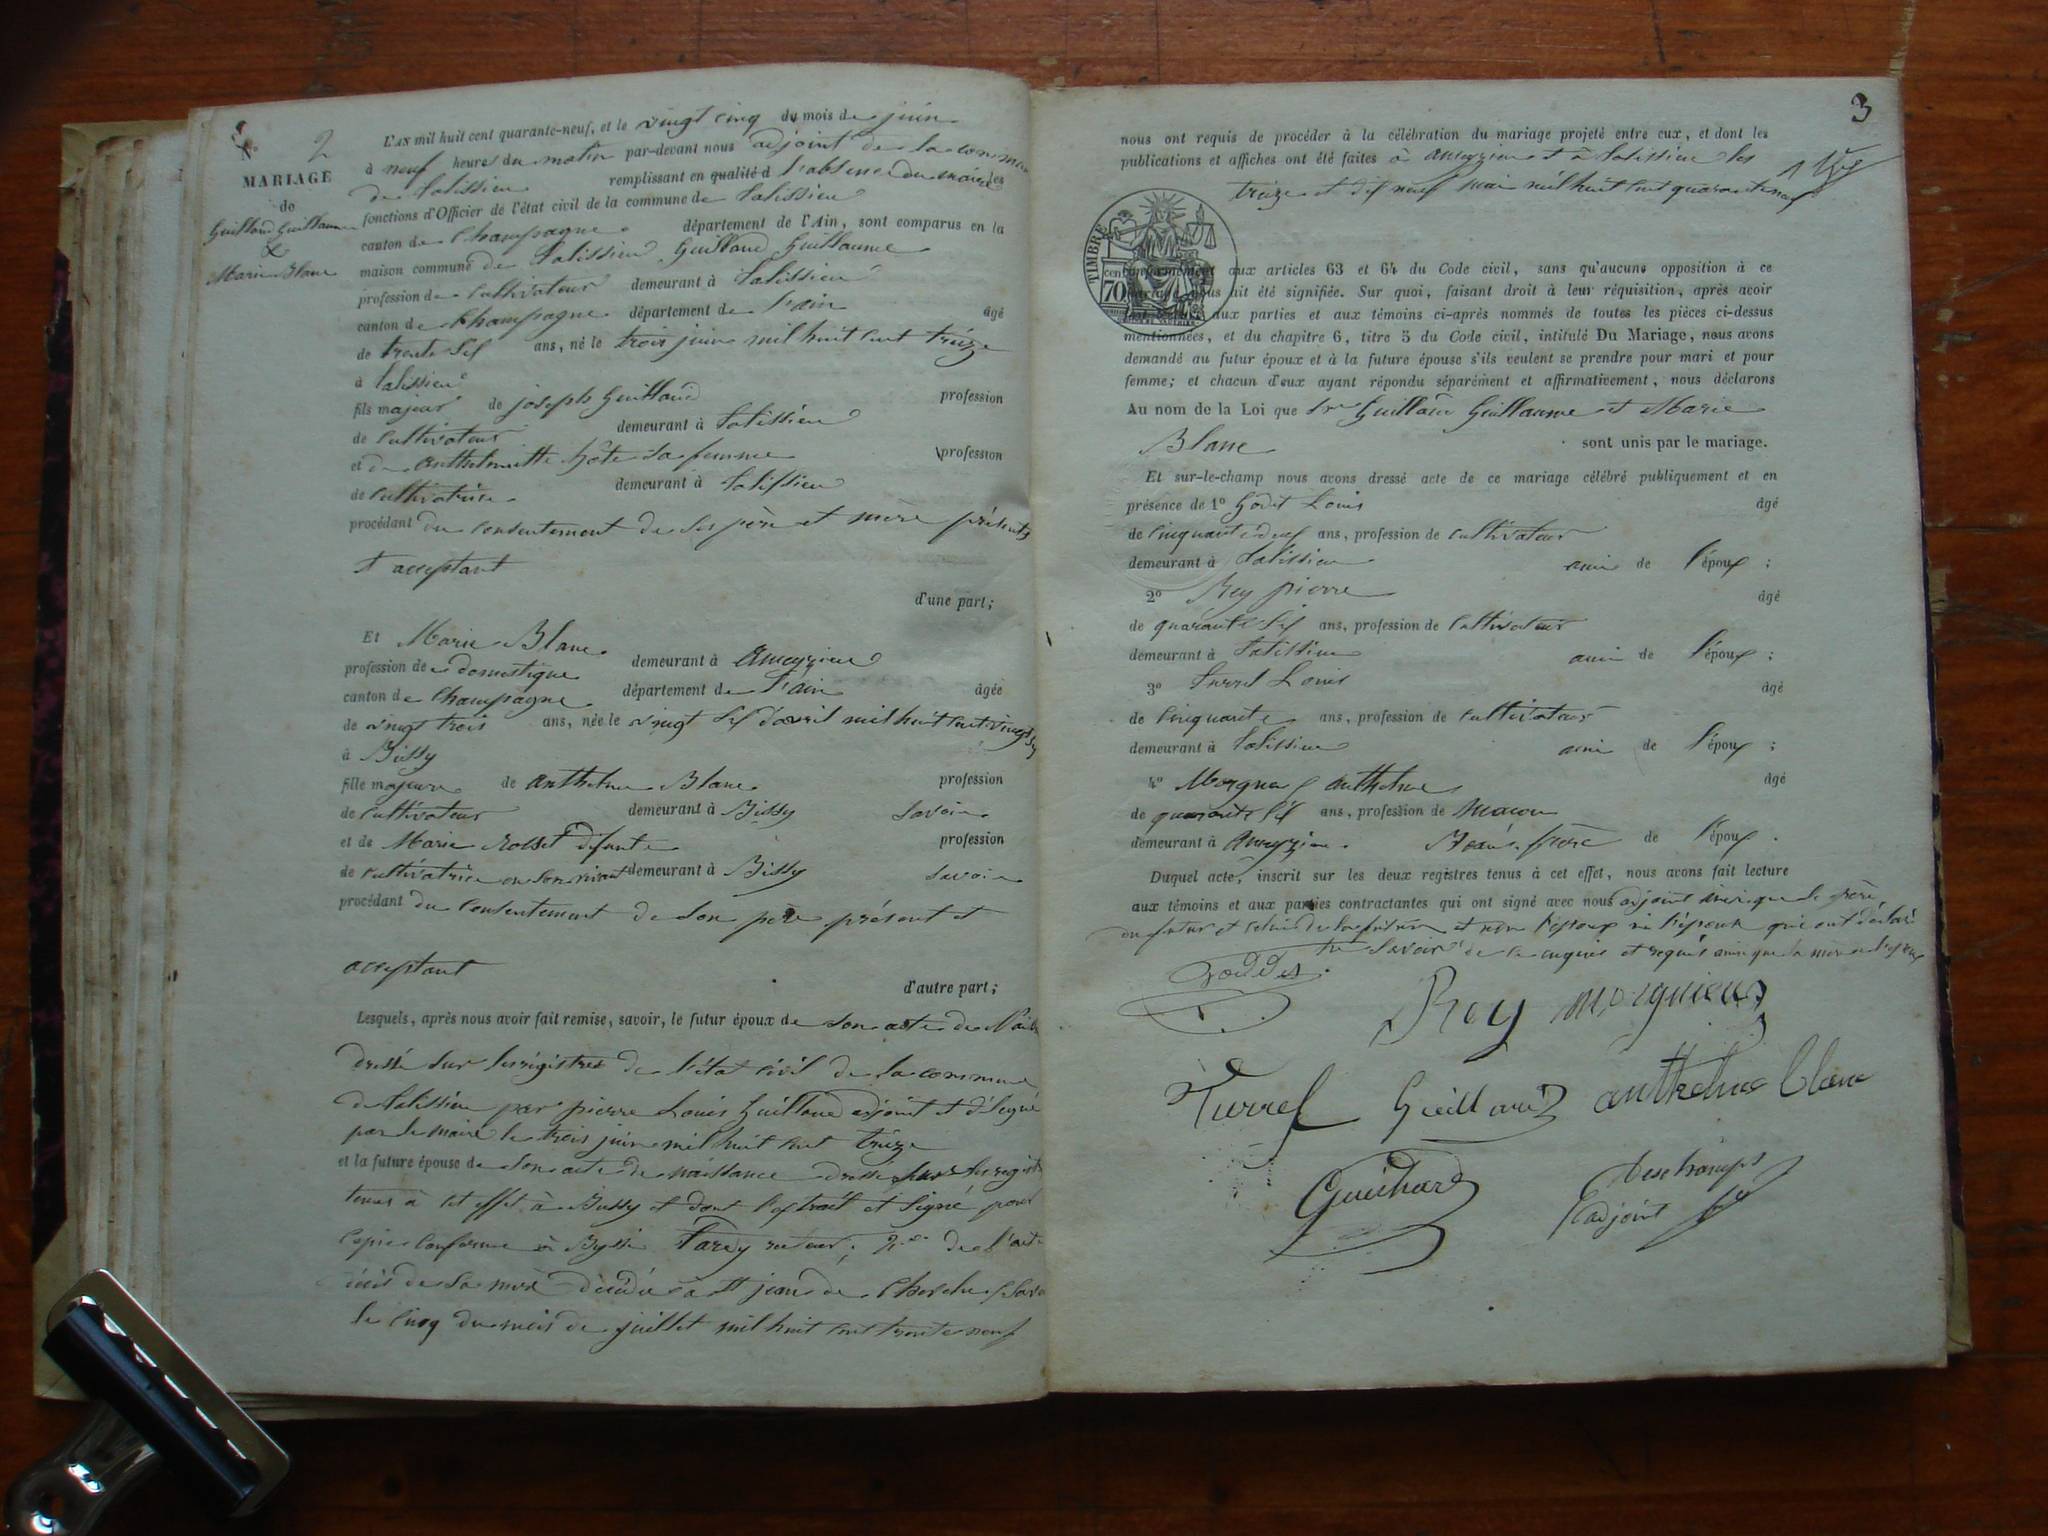 N° 2
MARIAGE
de
Guilland Guillaume
&
Marie Blanc
L'AN mil huit cent quarante-neuf, et le vingt cinq du mois de juin
à neuf heures du matin par-devant nous adjoint de la commune
de Talissieu remplissant en qualité d l'absence du maire les
fonctions d'Officier de l'état civil de la commune de Talissieu
canton de Champagne département de l'Ain, sont comparus en la
maison commune de Talissieu Guilland Guillaume
profession de Cultivateur demeurant à Talissieu
canton de Champagne département de l'ain âgé
de trente six ans, né le trois juin mil huit cent treize
à Talissieu
fils majeur de joseph Guilland profession
de Cultivateur demeurant à Talissieu
et de anthelmette sa femme profession
de Cultivatrice demeurant à Talissieu
procédant du consentement de ses père et mère présents
et acceptant
d'une part;
Et Marie Blanc
profession de domestique demeurant à Ameyzieu
canton de Champagne département de l'ain âgée
de vingt trois ans, née le vingt six d'avril mil huit cent vingt six
à Bissy
fille majeure de anthelme Blanc profession
de Cultivateur demeurant à Bissy Savoie
et de Marie Rosset défunte profession
de Cultivatrice en son vivant demeurant à Bissy Savoie
procédant du Consentement de son père présent et
acceptant
d'autre part;
Lesquels, après nous avoir fait remise, savoir, le futur époux de son acte de
dressé sur les régistres de l'état civil de la commune
de Talissieu par pierre Louis Guilland adjoint et délégué
par le maire le trois juin mil huit cent treize
et la future épouse de son acte de naissance dressé sur les regist
tenus à cet effet à Bissy et dont l'extrait est signé pour
Copie Conforme à recteur; 2.° de l'acte
décès de sa mère décédée à St jean de
le cinq du mois de juillet mil huit cent trente neuf
3
nous ont requis de procéder à la célébration du mariage projeté entre eux, et dont les
publications et affiches ont été faites à ameyzieu et à Talissieu les
treize et dix neuf mai mil huit cent quarante neuf
TIMBRE
70
conformément aux articles 63 et 64 du Code civil, sans qu'aucune opposition à ce
mariage nous ait été signifiée. Sur quoi, faisant droit à leur réquisition, après avoir
aux parties et aux témoins ci-après nommés de toutes les pièces ci-dessus
mentionnées, et du chapitre 6, titre 5 du Code civil, intitulé Du Mariage, nous avons
demandé au futur époux et à la future épouse s'ils veulent se prendre pour mari et pour
femme; et chacun d'eux ayant répondu séparément et affirmativement, nous déclarons
Au nom de la Loi que Guilland Guillaume et Marie
Blanc sont unis par le mariage.
Et sur-le-champ nous avons dressé acte de ce mariage célébré publiquement et en
présence de 1° Godet Louis âgé
de Cinquante deux ans, profession de cultivateur
demeurant à Talissieu ami de l'époux ;
2° Rey pierre âgé
de quarante six ans, profession de Cultivateur
demeurant à Talissieu ami de l'époux ;
3° Turrel Louis âgé
de Cinquante ans, profession de cultivateur
demeurant à Talissieu ami de l'époux ;
4° anthelme âgé
de quarante six ans, profession de Macon
demeurant à Ameyzieu Beau frère de l'époux .
Duquel acte, inscrit sur les deux registres tenus à cet effet, nous avons fait lecture
aux témoins et aux parties contractantes qui ont signé avec nous adjoint ainsi que le père
du futur et celui de la future et non l'époux ni l'épouse qui ont déclaré
ne savoir de ce enquis et requis ainsi que la mère de l'époux
Rey morgnieux
Turrel Guilland anthelme blanc
Guichard
Deschamps
adjoint